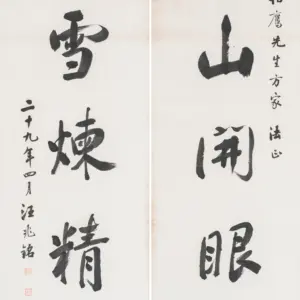 鷹先生方家 法正
山開眼
雪煉精
二十九年四月 汪兆銘